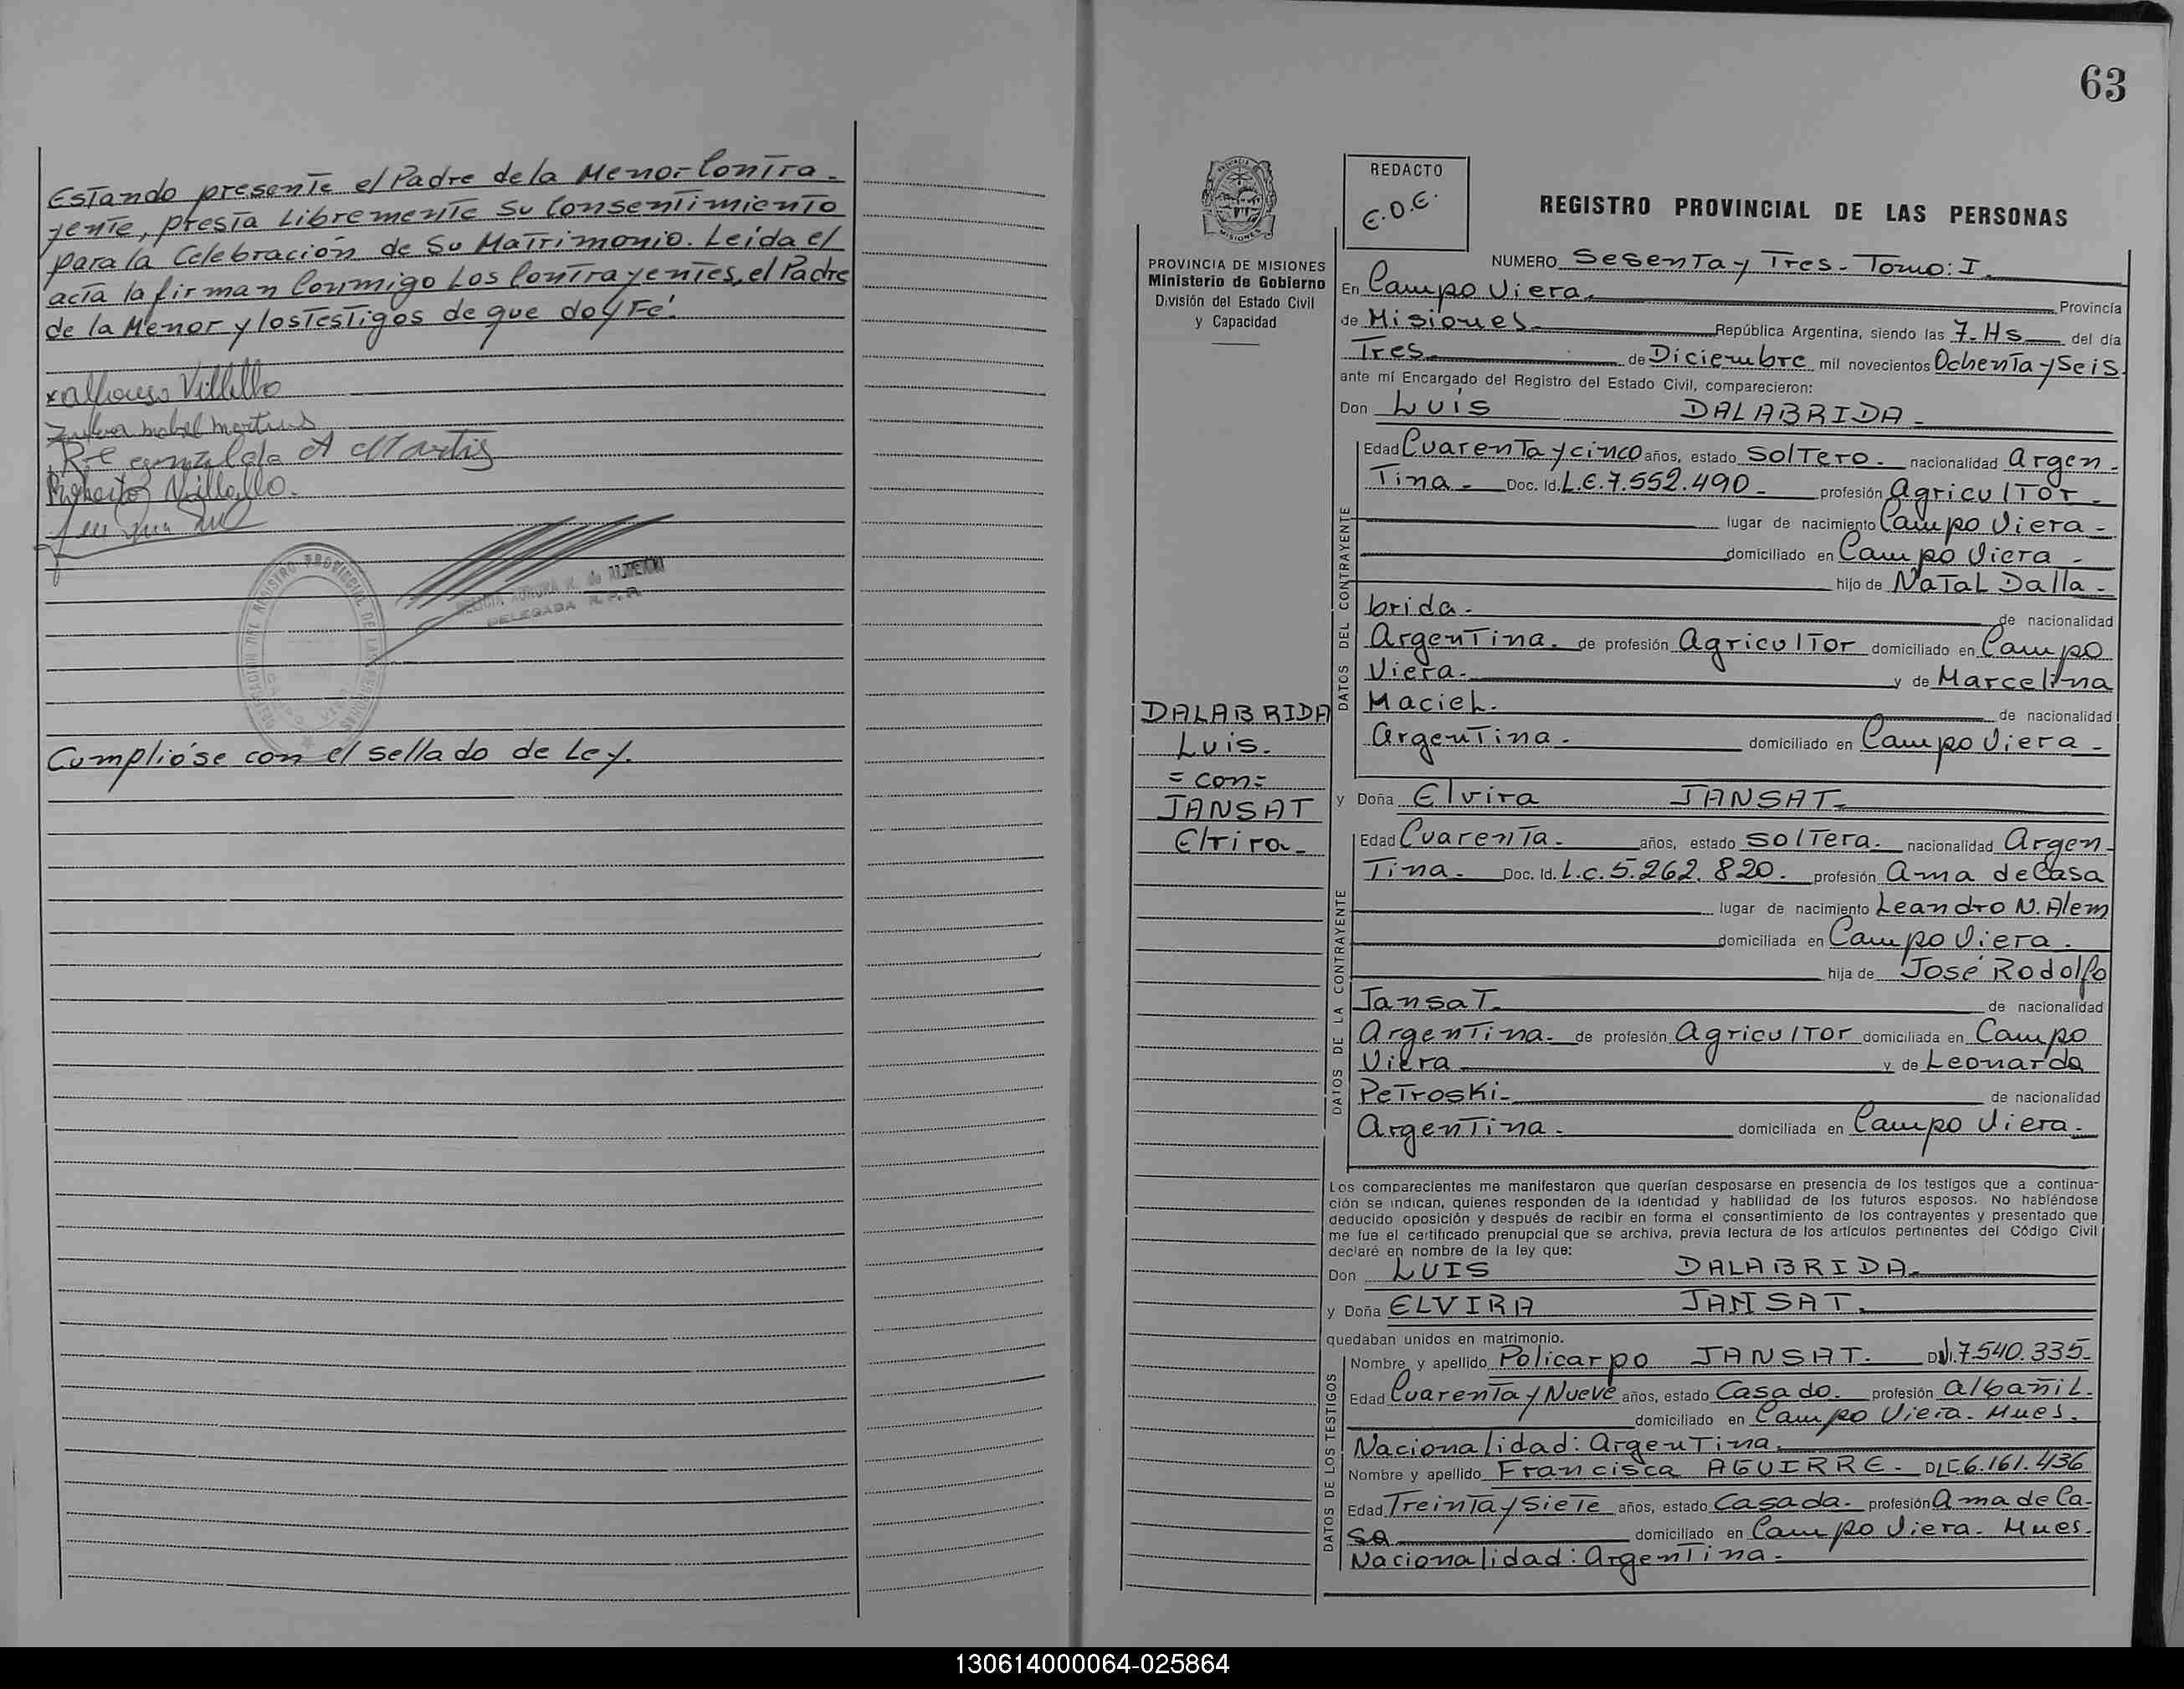 Estando presente el Padre de la Menor Contra-
yente, presta Libremente su Consentimiento
para la Celebración de Su Matrimonio. Leída el
acta la firman Conmigo Los Contrayentes, el Padre
de la Menor y los Testigos de que doy Fé.
Cumplióse con el sellado de Ley.
63
PROVINCIA DE MISIONES
Ministerio de Gobierno
División del Estado Civil
y Capacidad
REDACTO
E.D.E.
REGISTRO PROVINCIAL DE LAS PERSONAS
NUMERO Sesenta y Tres - Tomo: I.
En Campo Viera. Provincia
de Misiones. República Argentina, siendo las 7. Hs del día
Tres. de Diciembre mil novecientos Ochenta y Seis.
ante mí Encargado del Registro del Estado Civil, comparecieron:
Don Luis DALABRIDA -
DATOS DEL CONTRAYENTE
Edad Cuarenta y cinco años, estado Soltero. nacionalidad Argen-
Tina - Doc. Id. L.E. 7.552.490 - profesión Agricultor -
lugar de nacimiento Campo Viera -
domiciliado en Campo Viera -
hijo de Natal Dalla-
brida - de nacionalidad
Argentina. de profesión Agricultor domiciliado en Campo
Viera - y de Marcelina
Maciel. de nacionalidad
Argentina - domiciliado en Campo Viera -
DALABRIDA
Luis.
= con =
JANSAT
Elvira -
y Doña Elvira JANSAT -
DATOS DE LA CONTRAYENTE
Edad Cuarenta - años, estado Soltera. nacionalidad Argen-
Tina - Doc. Id. L.C. 5.262.820. profesión Ama de Casa
lugar de nacimiento Leandro N. Alem
domiciliada en Campo Viera.
hija de José Rodolfo
Jansat - de nacionalidad
Argentina - de profesión Agricultor domiciliada en Campo
Viera y de Leonarda
Petroski - de nacionalidad
Argentina - domiciliada en Campo Viera -
Los comparecientes me manifestaron que querían desposarse en presencia de los testigos que a continua-
ción se indican, quienes responden de la identidad y habilidad de los futuros esposos. No habiéndose
deducido oposición y después de recibir en forma el consentimiento de los contrayentes y presentado que
me fue el certificado prenupcial que se archiva, previa lectura de los artículos pertinentes del Código Civil
declaré en nombre de la ley que:
Don LUIS DALABRIDA -
y Doña ELVIRA JANSAT.
quedaban unidos en matrimonio.
DATOS DE LOS TESTIGOS
Nombre y apellido Policarpo JANSAT. DNI. 7.540.335 -
Edad Cuarenta y Nueve años, estado Casado. profesión albañil.
domiciliado en Campo Viera - Mnes.
Nacionalidad: Argentina.
Nombre y apellido Francisca AGUIRRE - DLC 6.161.436
Edad Treinta y Siete años, estado Casada - profesión Ama de Ca-
sa domiciliado en Campo Viera - Mnes.
Nacionalidad: Argentina -
130614000064-025864